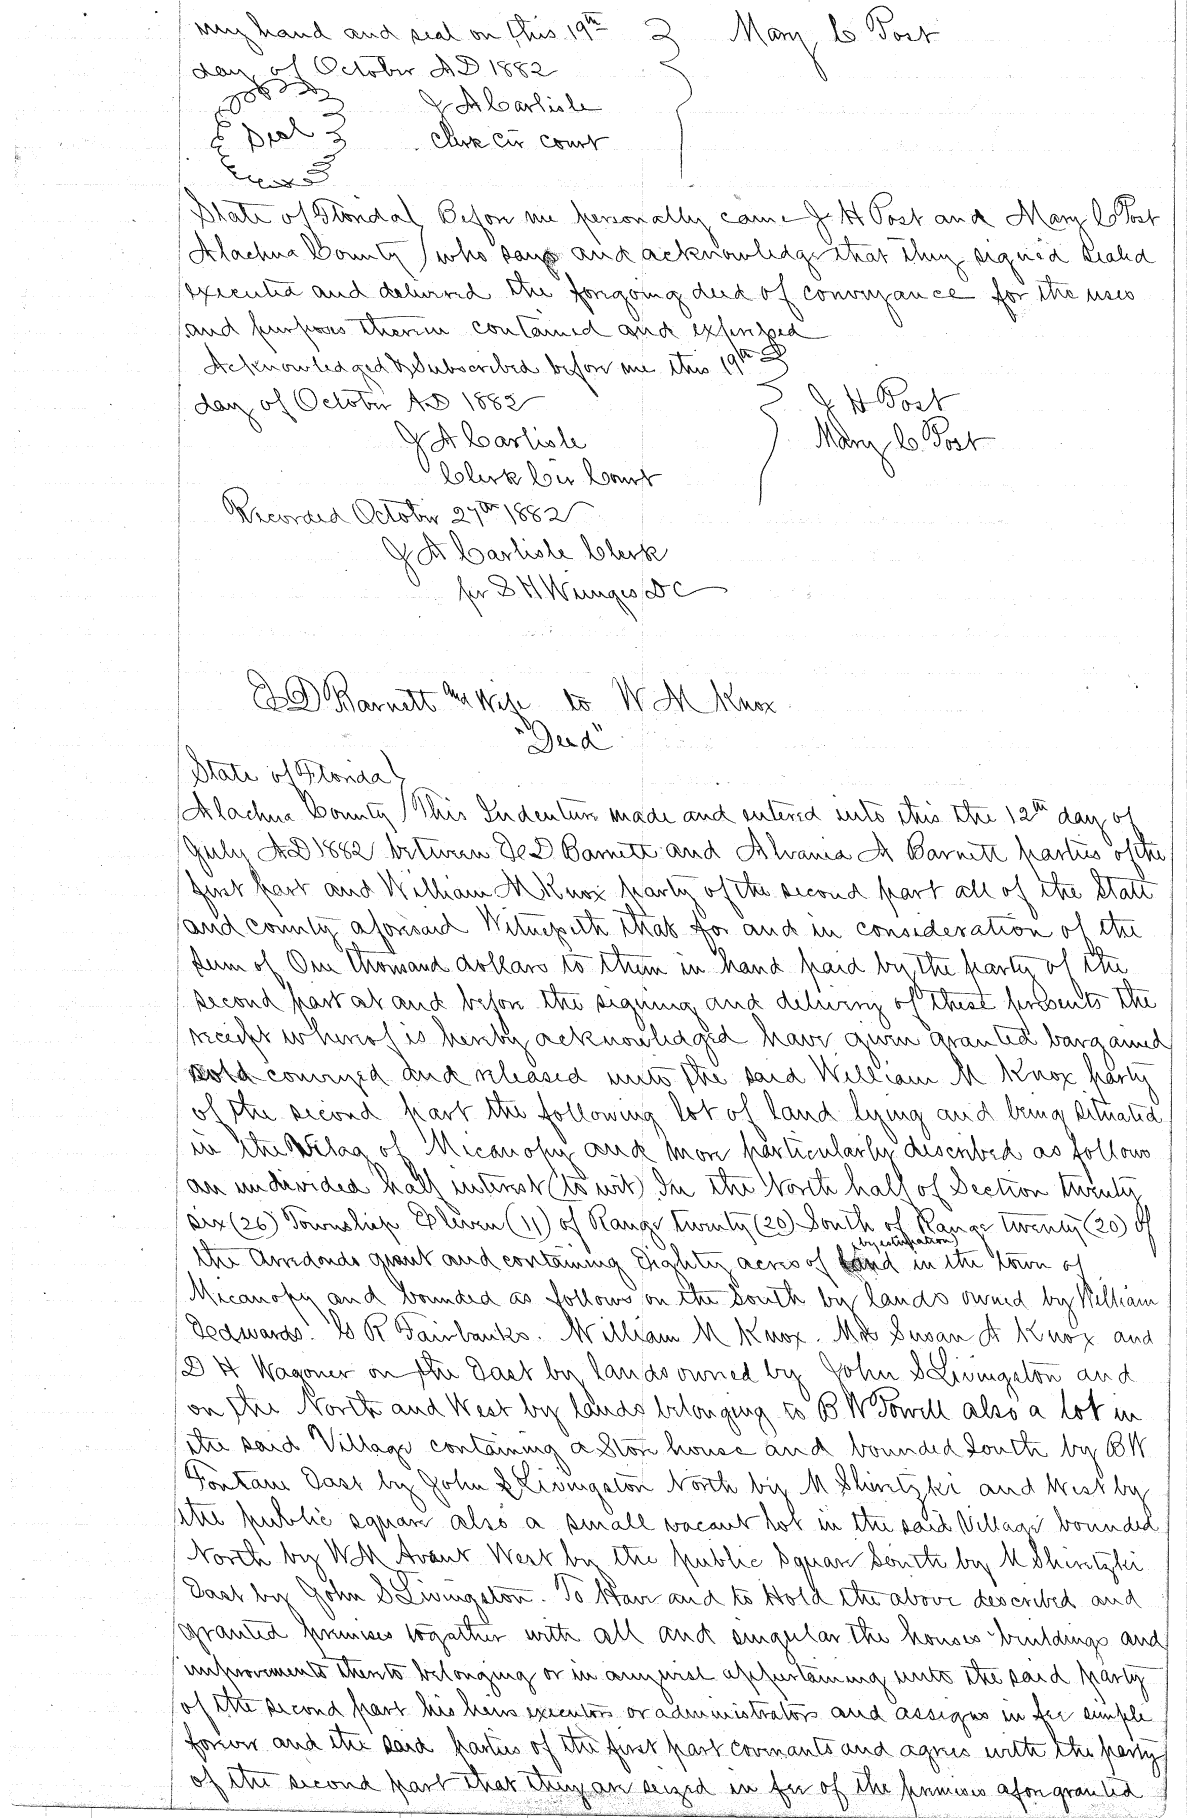 my hand and seal on this 19th Mary C Post
day of October AD 1882
J A Carlisle
Seal
Clerk Cir court
State of Florida Before me personally came J H Post and Mary C Post
Alachua County who says and acknowledge that they signed sealed
executed and delivered the foregoing deed of conveyance for the uses
and purposes therein contained and expressed
Acknowledged & Subscribed before me this 19th
day of October AD 1882 J H Post
J A Carlisle Mary C. Post
Clerk Cir Court
Recorded October 27th 1882
J A Carlisle Clerk
per S H Wienges DC
D Barnett and Wife to W M Knox
"Deed"
State of Florida
Alachua County This Indenture made and entered into this the 12th day of
July AD 1882 between D Barnett and Alvania A Barnett parties of the
first part and William M Knox party of the second part all of the State
and county aforesaid Witnesseth that for and in consideration of the
sum of One thousand dollars to them in hand paid by the party of the
second part at and before the signing and delivery of these presents the
receipt whereof is hereby acknowledged have given granted bargained
sold conveyed and released unto the said William M Knox party
of the second part the following lot of land lying and being situated
in the Vilag of Micanopy and more particularly described as follows
an undivided half interest (to wit) In the North half of Section twenty
six (26) Township Eleven (11) of Range twenty (20) South of Range twenty (20) of
the Arredondo grant and containing Eighty acres of (by estimation) land in the town of
Micanopy and bounded as follows on the South by lands owned by William
Edwards. G R Fairbanks. William M Knox. Mrs Susan A Knox and
D H Wagoner on the East by lands owned by John S Livingston and
on the North and West by lands belonging to B W Powell also a lot in
the said Village containing a Store house and bounded South by BW
Fontane East by John S Livingston North by M Shiretzki and West by
the public square also a small vacant lot in the said Village bounded
North by WM Avant West by the public square South by M Shiretzki
East by John S Livingston. To Have and to Hold the above described and
granted premises together with all and singular the houses buildings and
improvements thereto belonging or in anywise appertaining unto the said party
of the second part his heirs executors or administrators and assigns in fee simple
forever and the said parties of the first part covenants and agrees with the party
of the second part that they are seized in fee of the premises afore granted